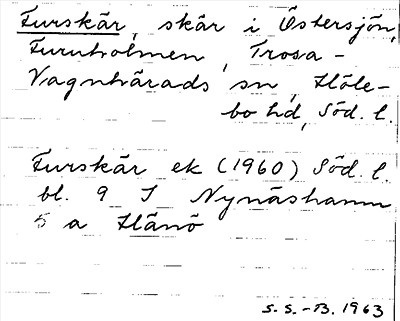 Furskär, skär i Östersjön,
Furuholmen, Trosa-
Vagnhärads sn, Höle-
bo hd, Söd. l.
Furskär ek (1960) Söd. l.
bl. 9 J Nynäshamn
5 a Hänö
S. S. -B. 1963